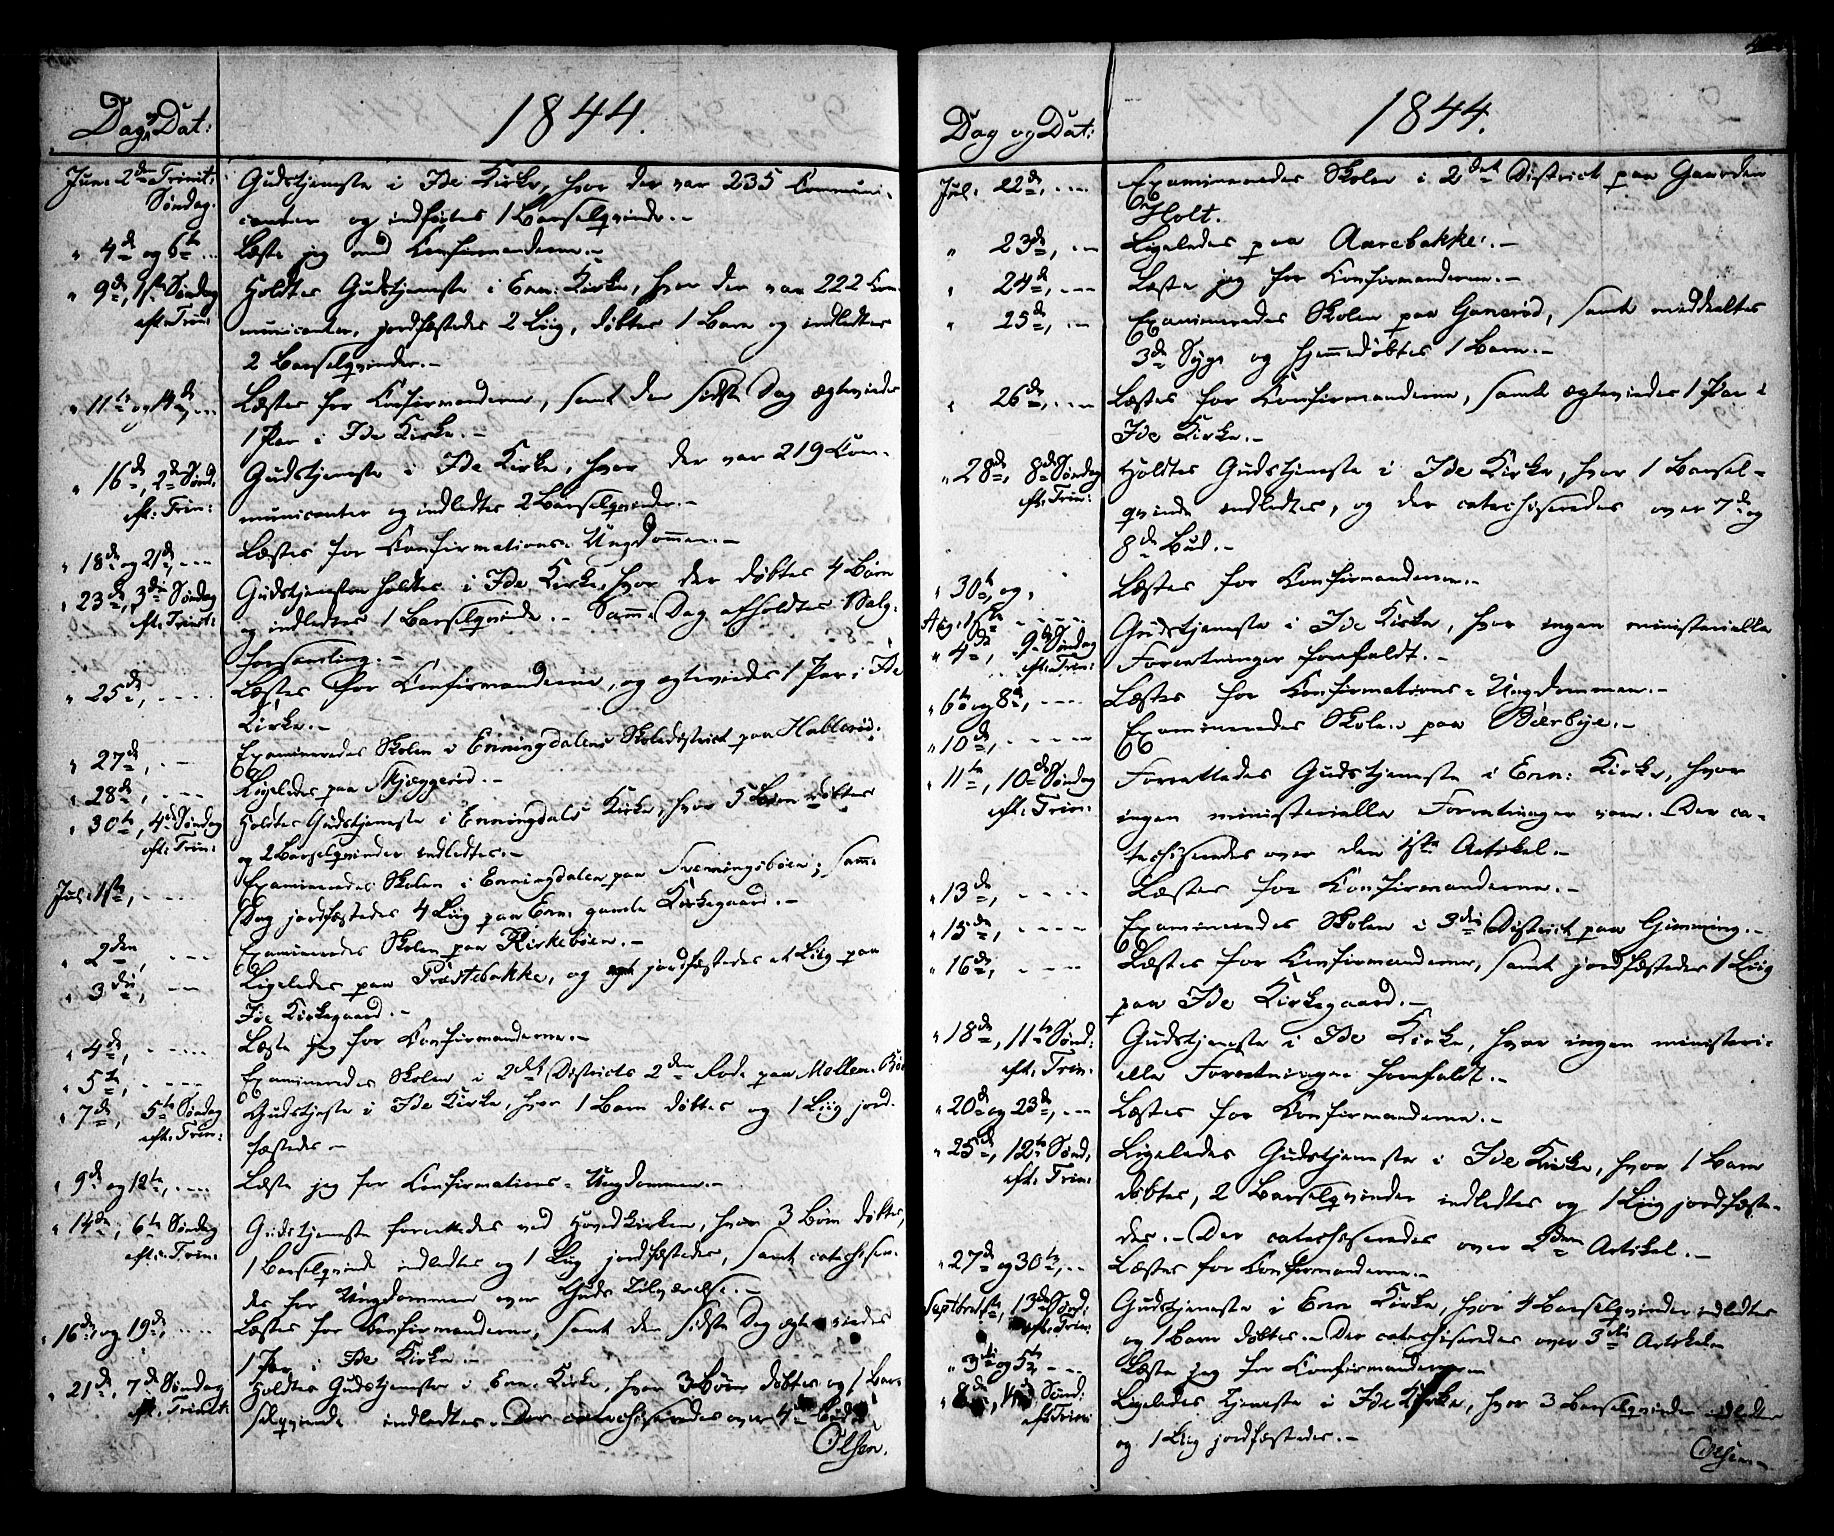 Dag og Dat:
1844.
Jun: 2den Trinit: Gudstjeneste i Ide Kirke, hvor der var 235 Communi-
Søndag. canter og indførtes 1 Barselqvinde.-
" 4de og 6te ... Læste jeg med Confirmanderne.-
" 9de, 1ste Søndag Holdtes Gudstjeneste i Enn: Kirke, hvor der var 222 Com-
eft: Trin: municanter, jordfæstedes 2 Liig, døbtes 1 Barn og indledtes
2 Barselqvinder.-
" 11te og 14de, ... Læstes for Confirmanderne, samt den sidste Dag ægteviedes
1 Par i Ide Kirke.-
" 16de, 2den Sønd. Gudstjeneste i Ide Kirke, hvor der var 219 Com-
eft: Trin: municanter og indledtes 2 Barselqvinder.-
" 18de og 21de, ... Læstes for Confirmations-Ungdommen.-
" 23de, 3die Søndag Gudstjenesten holdtes i Ide Kirke, hvor der døbtes 4 Børn
eft: Trinit: og indledtes 1 Barselqvinde.- Samme Dag afholdtes Valg-
forsamling.-
" 25de, ---- Læstes for Confirmanderne, og ægteviedes 1 Par i Ide
Kirke.-
" 27de, -- Examineredes Skolen i Enningdalens Skoledistrict paa Hallerød:
" 28de, --- Ligeledes paa Skjeggerød.-
" 30te, 4de Søndag Holdtes Gudstjeneste i Enningdals Kirke, hvor 5 Børn døbtes
eft: Trin: og 2 Barselqvinder indledtes.-
Jul: 1ste, --- Examineredes Skolen i Enningdalen paa Sverningsbøen; samme
Dag jordfæstedes 4 Liig paa Enn: gamle Kirkegaard.-
" 2den, --- Examineredes Skolen paa Kirkebøen.-
" 3die, -- Ligeledes paa Præstebakke, og jordfæstedes et Liig paa
Ide Kirkegaard.-
" 4de, ---- Læste jeg for Confirmanderne.-
" 5te, ---- Examineredes Skolen i 2det Districts 2den Rode paa Mellem-Bøe
" 7de, 5te Søndag Gudstjeste i Ide Kirke, hvor 1 Barn døbtes og 1 Liig jord-
eft: Trin: fæstedes-
" 9de og 12te, ... Læste jeg for Confirmations-Ungdommen.-
" 14de, 6te Søndag Gudstjeneste forrettedes ved Hovedkirken, hvor 3 Børn døbtes,
eft: Trin: 1 Barselqvinde indledtes og 1 Liig jordfæstedes, samt catechiseredes
for Ungdommen over Guds Tilværelse.-
" 16de og 19de, ... Læstes for Confirmanderne, samt den sidste Dag ægteviedes
1 Par i Ide Kirke.-
" 21de, 7de Søndag Holdtes Gudstjeneste i Enn: Kirke, hvor 3 Børn døbtes og 1 Bar-
eft: Trinit: selqvinde indledtes. Der catechiseredes over 4de Bud.
Olsen.
Dag og Dat:
1844.
Jul: 22de, --- Examineredes Skolen i 2det District paa Gaarden
Holt.
" 23de, -- Ligeledes paa Aarebakke.-
" 24de, --- Læste jeg for Confirmanderne.-
" 25de, -- Examineredes Skolen paa Ganerød, samt meddeeltes
3de Syge og hjemmedøbtes 1 Barn.-
" 26de, --- Læstes for Confirmanderne, samt ægteviedes 1 Par i
Ide Kirke.-
" 28de, 8de Søndag Holdtes Gudstjeneste i Ide Kirke, hvor 1 Barsel-
eft: Trin: qvinde indledtes, og der catechiseredes over 7de og
8de Bud.-
" 30te, og Læstes for Confirmanderne.-
Aug: ---
" 4de, 9de Søndag Gudstjeneste i Ide Kirke, hvor ingen ministerielle
eft: Trin: Forretninger forefaldt.-
" 6te og 8de, --- Læstes for Confirmations-Ungdommen.-
" 10de, ----- Examineredes Skolen paa Bierbye.-
" 11te, 10de Søndag Forrettedes Gudstjeneste i Enn: Kirke, hvor
eft: Trin: ingen ministerielle Forretninger vare. Der ca-
techiseredes over den 1ste Artikel.-
" 13de, ---- Læstes for Confirmanderne.-
" 15de, ---- Examineredes Skolen i 3die District paa Gimming.-
" 16de, --- Læstes for Confirmanderne, samt jordfæstedes 1 Liig
paa Ide Kirkegaard.-
" 18de, 11te Sønd: Gudstjeneste i Ide Kirke, hvor ingen ministeri-
eft: Trin: elle Forretninger forefaldt.-
" 20de og 23de, --- Læstes for Confirmanderne.-
" 25de, 12te Sønd, Ligeledes Gudstjeneste i Ide Kirke, hvor 1 Barn
eft: Trin: døbtes, 2 Barselqvinder indledtes og 1 Liig jordfæste-
des.- Der catechiseredes over 2den Artikel.-
" 27de og 30te, -- Læstes for Confirmanderne.-
Septbr 1ste, 13de Sønd. Gudstjeneste i Enn Kirke, hvor 4 Barselqvinder indledtes
eft: Trin: og 1 Barn døbtes.- Der catechiseredes over 3die Artikel.-
" 3die og 5te, --- Læste jeg for Confirmanderne.-
" 8de, Sønd: Ligeledes Tjeneste i Ide Kirke, hvor 3 Barselqvinder indledtes
eft Trin: og 1 Liig jordfæstedes.-
Olsen.-